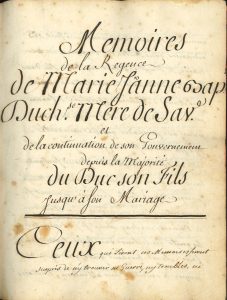 Memoires
de la Regence
de Marie Janne Bap
Duch.se Mere de Sav.e
et
de la continuation de son Gouvernement
depuis la Majorité
du Duc son Fils
Jusqu'à son Mariage
Ceux que liront ces Memoires seront
surpris de n'y trouver ni Guerre, ny troubles, ni